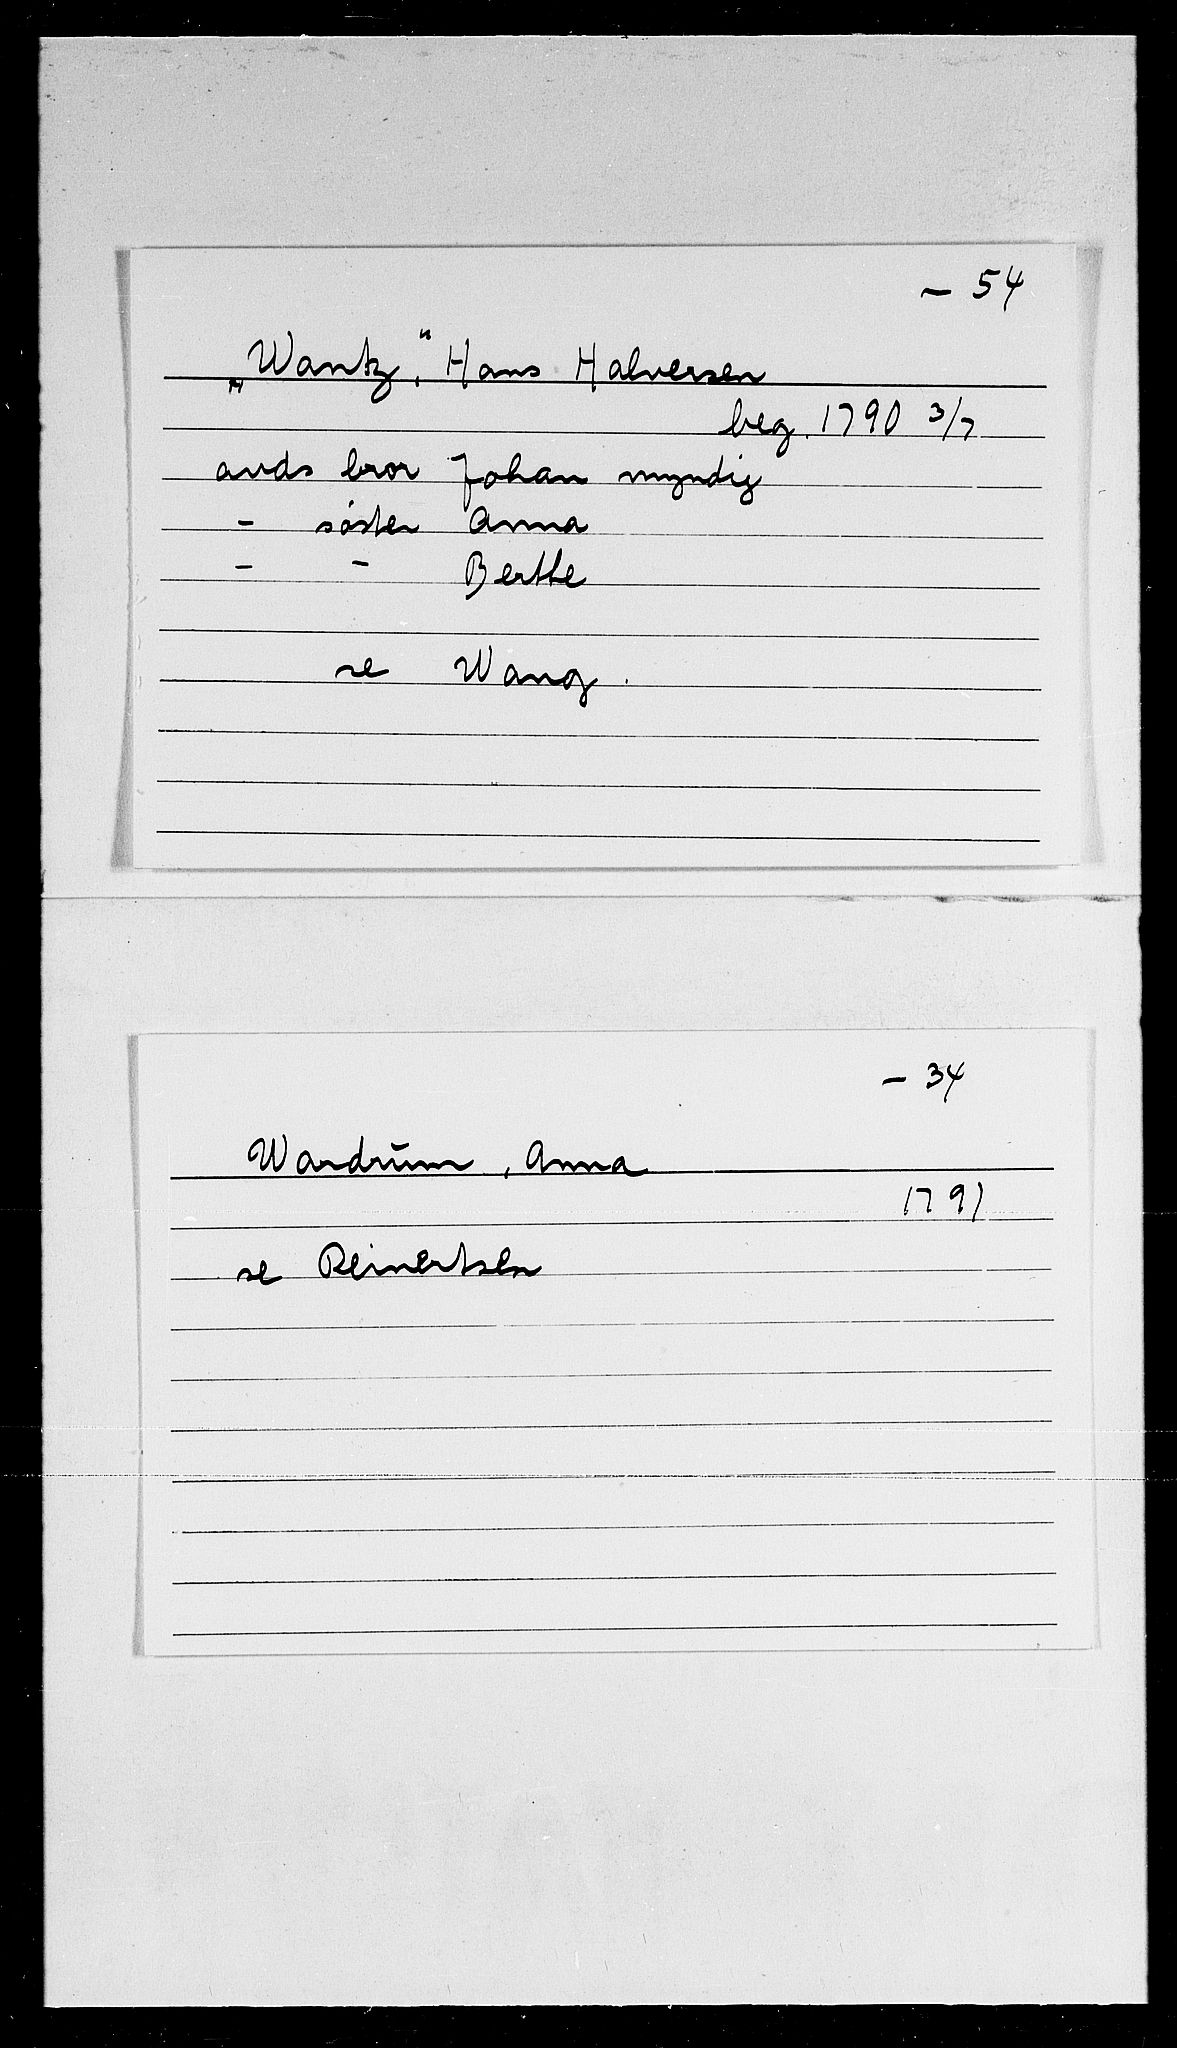 – 54
„Wantz," Hans Halversen
beg. 1790 3/7
avds bror Johan myndig
- søster Anna
- - Berthe
se Wang.
– 34
Wardrŭm, Anna
1791
se Reinertsen